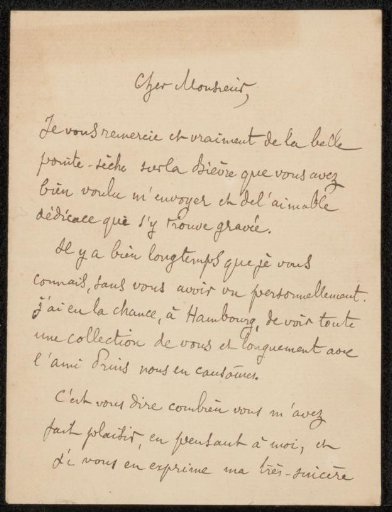 Cher Monsieur,
Je vous remercie et vraiment de la belle
pointe-sèche sur la Bièvre que vous avez
bien voulu m'envoyer et de l'aimable
dédicace que s'y trouve gravée.
Il y a bien longtemps que je vous
connais, sans vous avoir vu personnellement.
j'ai eu la chance, à Hambourg, de voir toute
une collection de vous et longuement avec
l'ami Prins nous en causâmes.
C'est vous dire combien vous m'avez
fait plaisir, en pensant à moi, et
si vous en exprime ma très-sincère